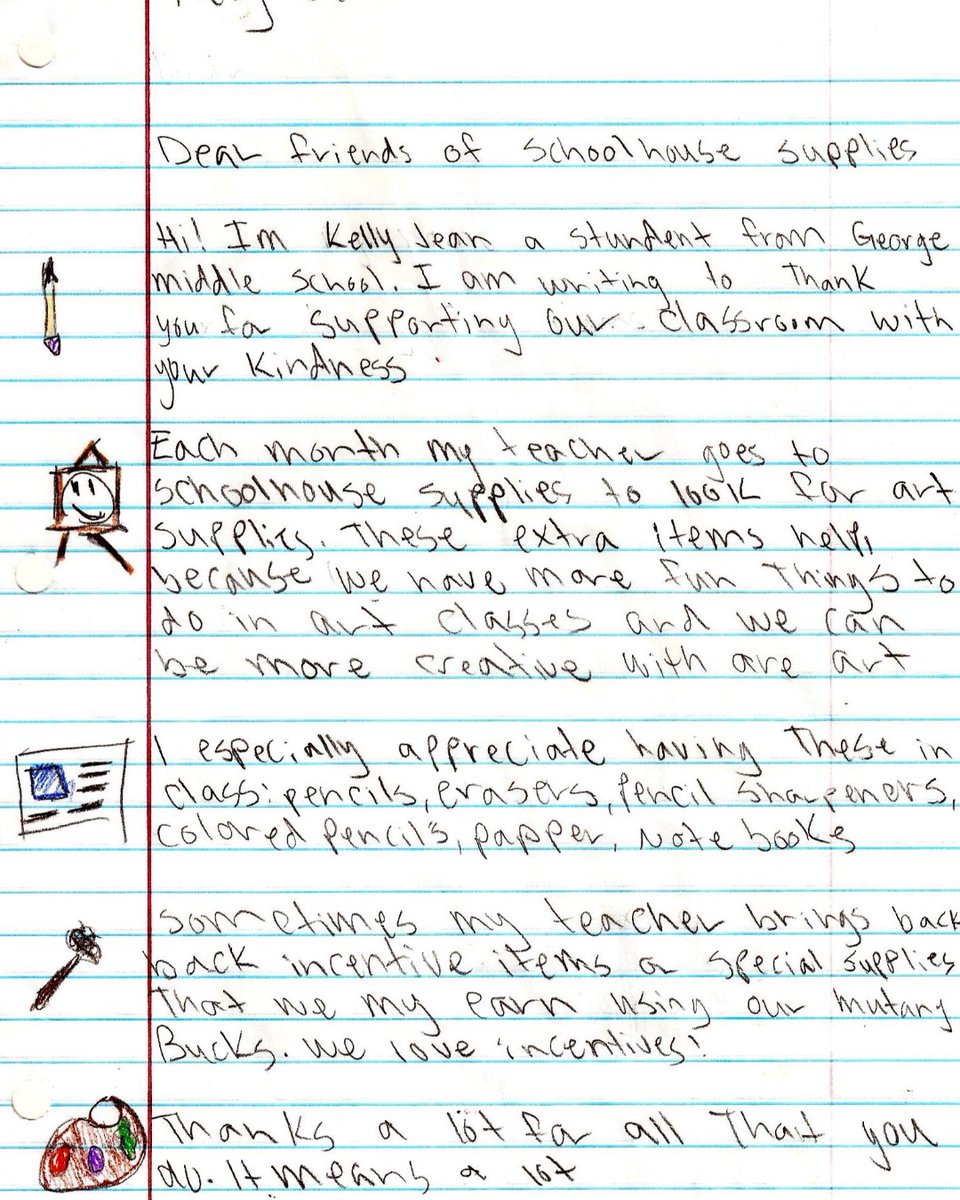 Dear friends of schoolhouse supplies
Hi! Im Kelly Jean a stundent from George
middle school. I am writing to thank
you for supporting our classroom with
your kindness
Each month my teacher goes to
schoolhouse supplies to look for art
supplies. These extra items help,
because we have more fun things to
do in art classes and we can
be more creative with are art
I especially appreciate having these in
class: pencils, erasers, pencil sharpeners,
colored pencils, papper, note books
sometimes my teacher brings back
back incentive items or special supplies
that we my earn using our mutany
Bucks. we love incentives!
Thanks a lot for all that you
do. It means a lot